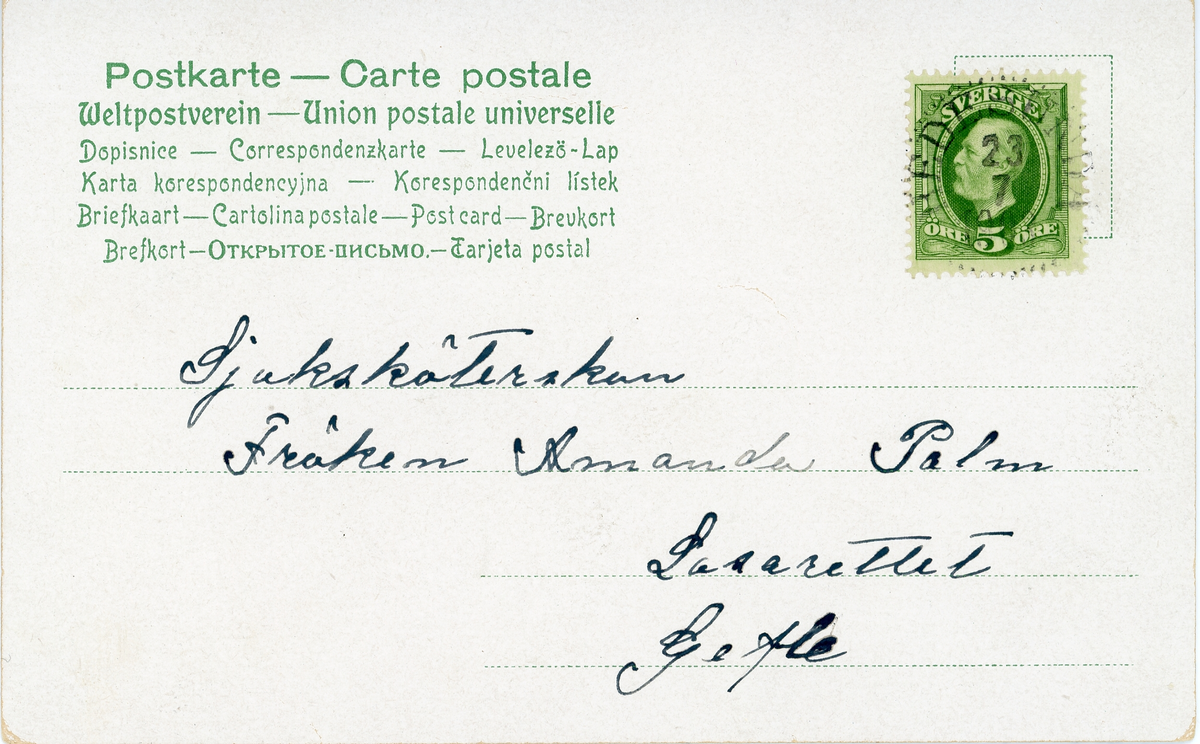 Postkarte — Carte postale
Weltpostverein — Union postale universelle
Dopisnice — Correspondenzkarte — Levelező-Lap
Karta korespondencyjna — Korespondenčni lístek
Briefkaart — Cartolina postale — Post card — Brevkort
Brefkort — Открытое-письмо. — Tarjeta postal
SVERIGE
23
7
ÖRE 5 ÖRE
Sjuksköterskan
Fröken Amanda Palm
Lasarettet
Gefle